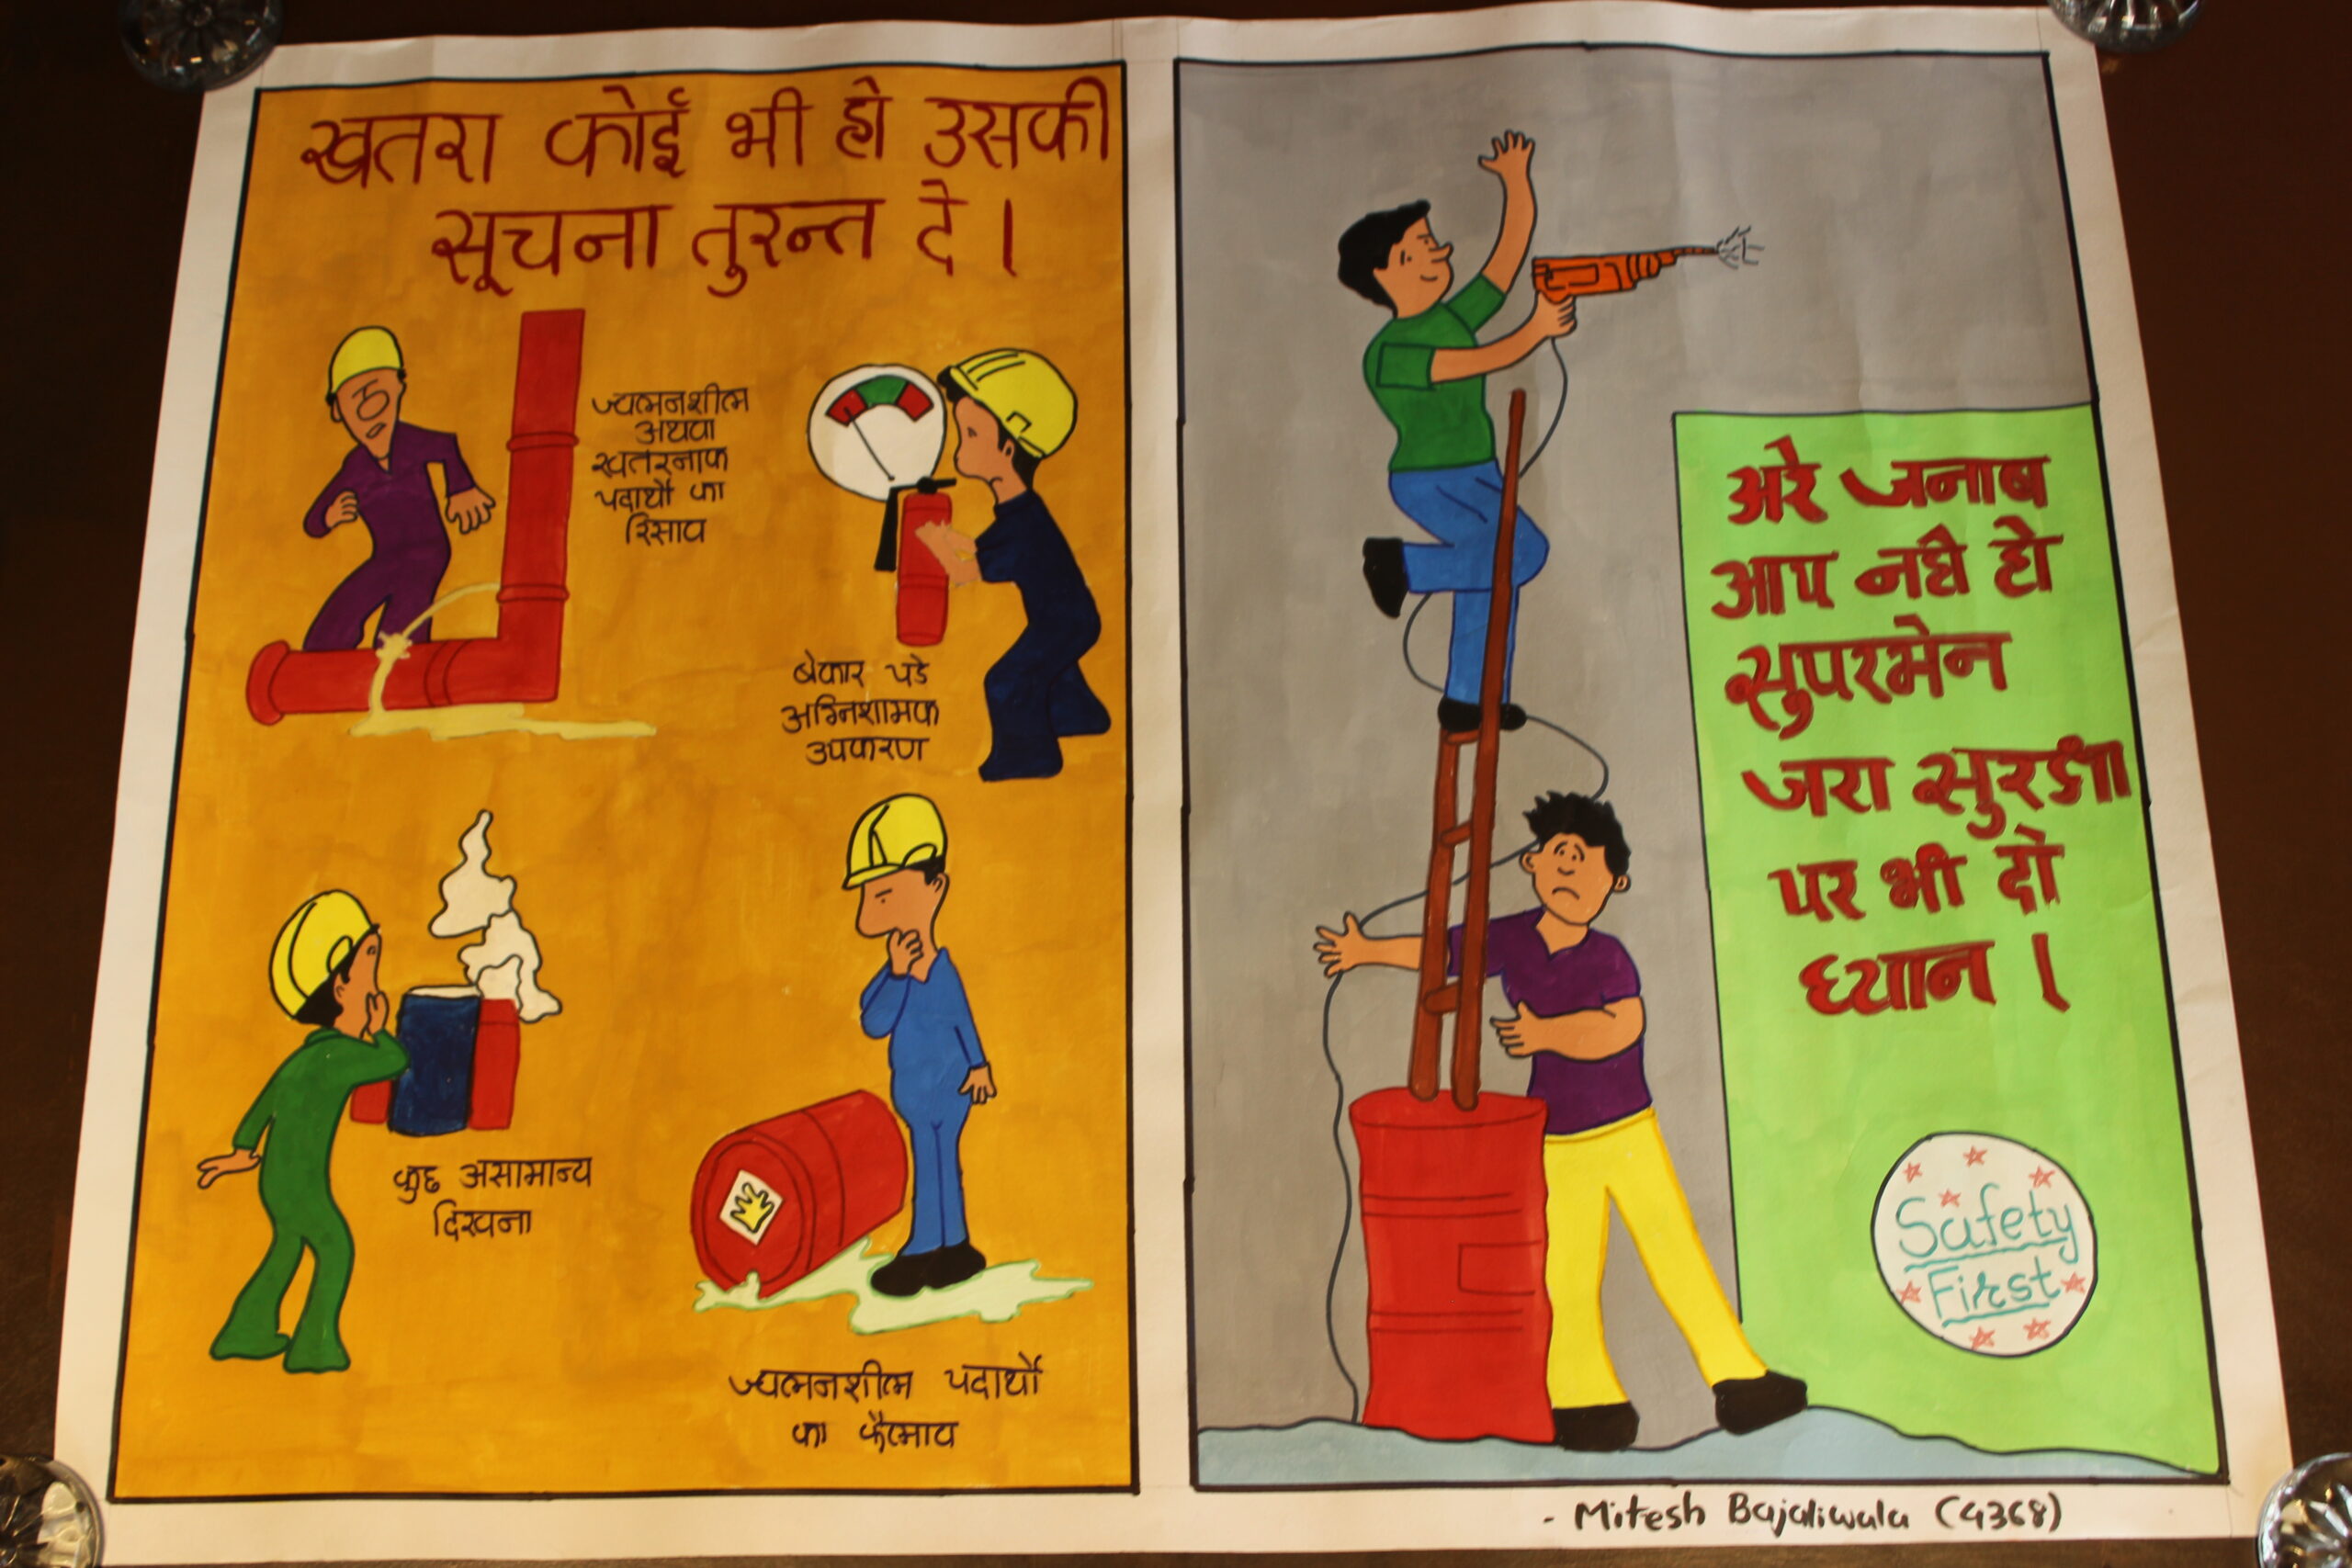 खतरा कोई भी हो उसकी
सूचना तुरन्त दे।
ज्वलनशील
अथवा
खतरनाक
पदार्थो का
रिसाव
बेकार पडे
अग्निशामक
उपकरण
कुछ असामान्य
दिखना
ज्वलनशील पदार्थो
का फैलाव
अरे जनाब
आप नही हो
सुपरमेन
जरा सुरक्षा
पर भी दो
ध्यान।
Safety
First
- Mitesh Bajaliwala (4368)